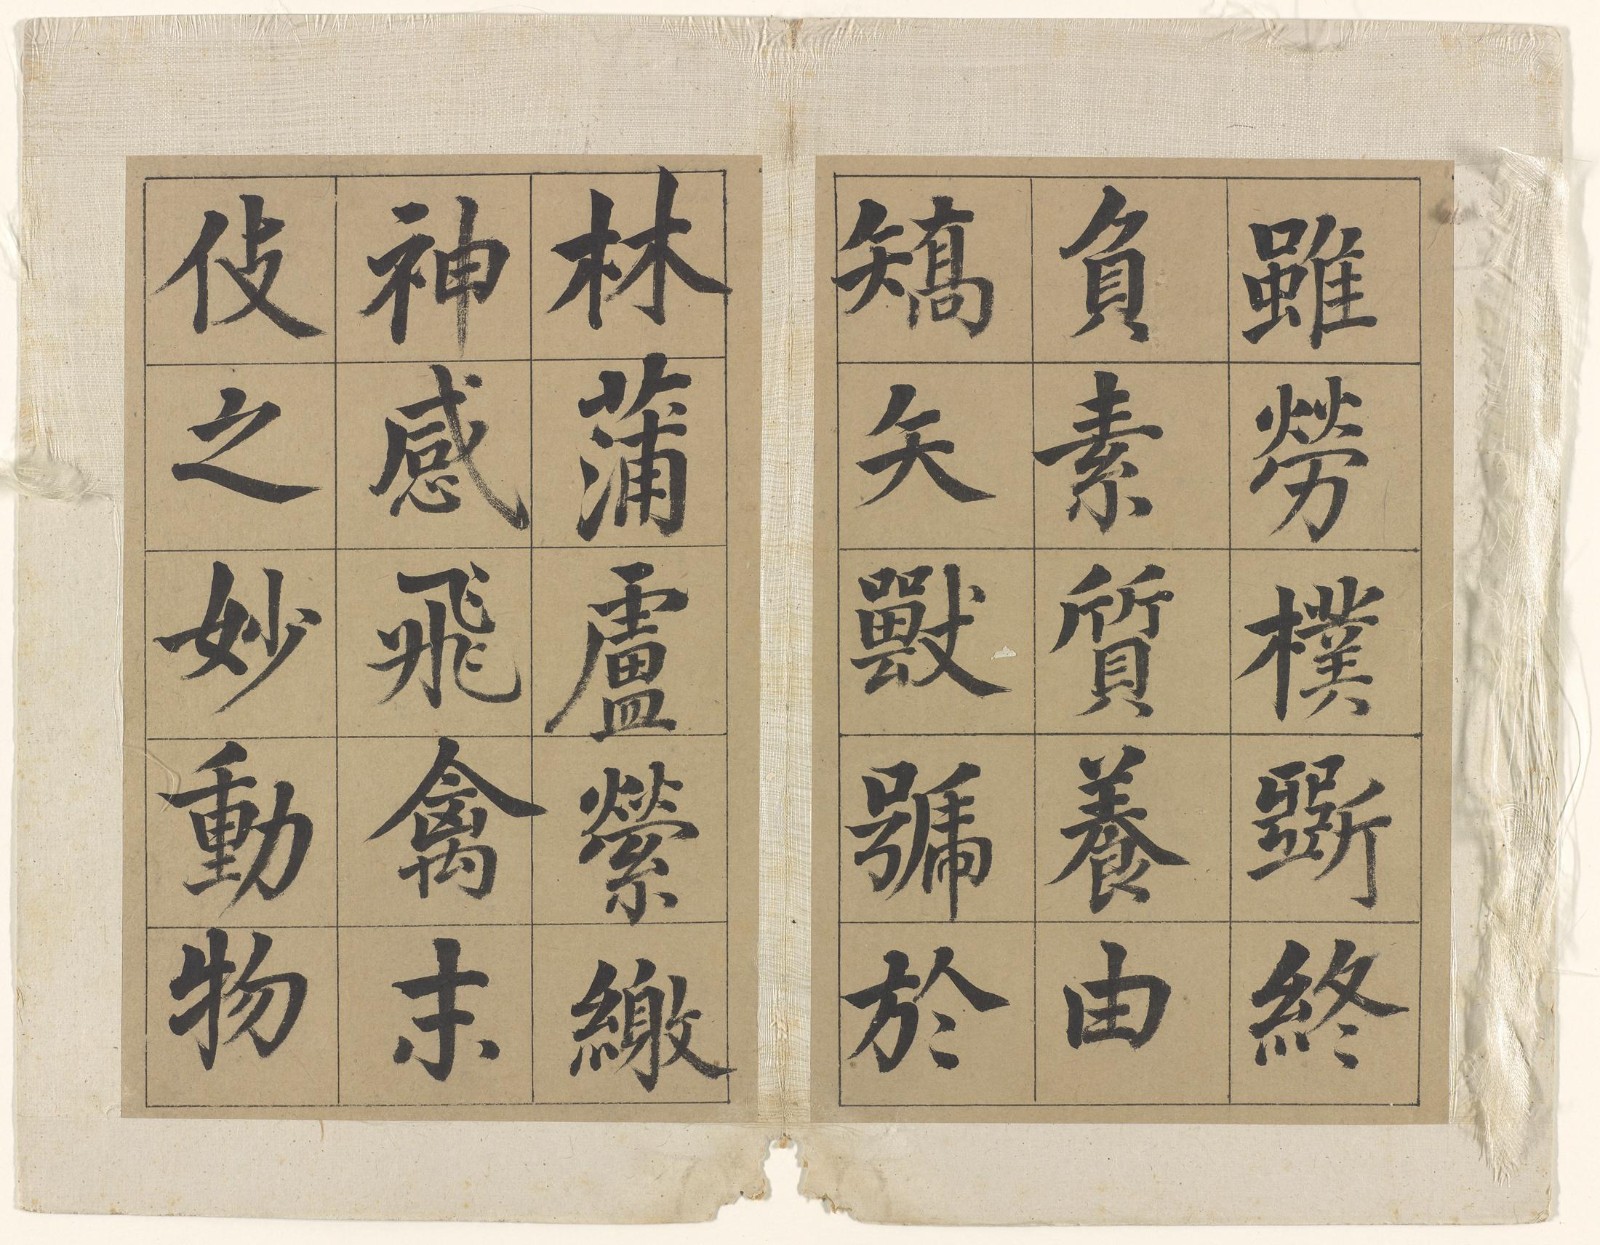 雖勞樸斵終
負素質養由
矯矢獸號於
林蒲盧縈繳
神感飛禽末
伎之妙動物